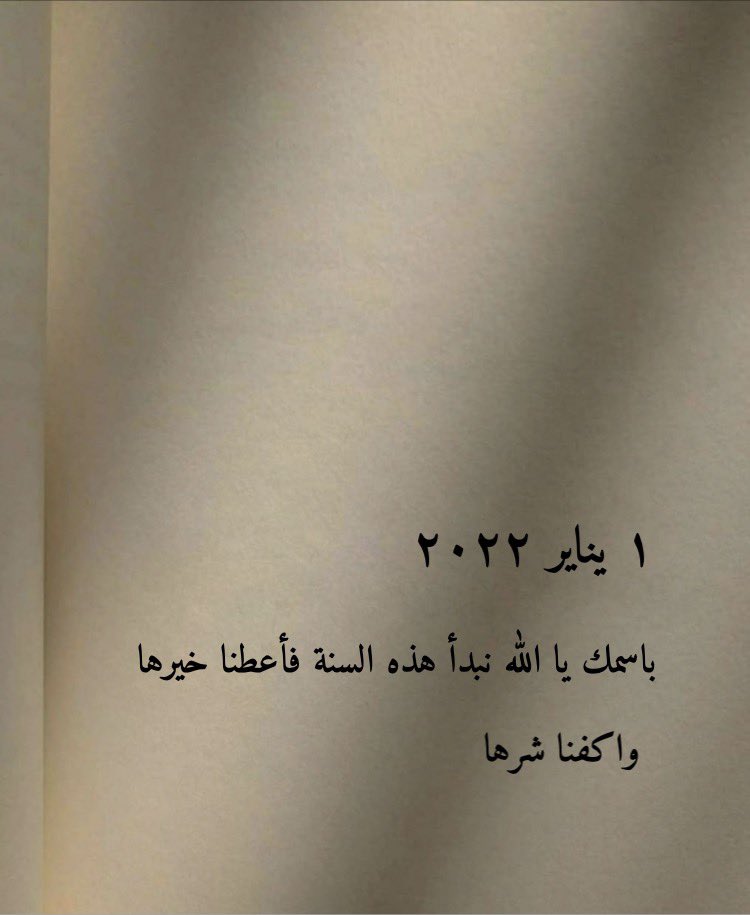 ١ يناير ٢٠٢٢
باسمك يا الله نبدأ هذه السنة فأعطنا خيرها
واكفنا شرها